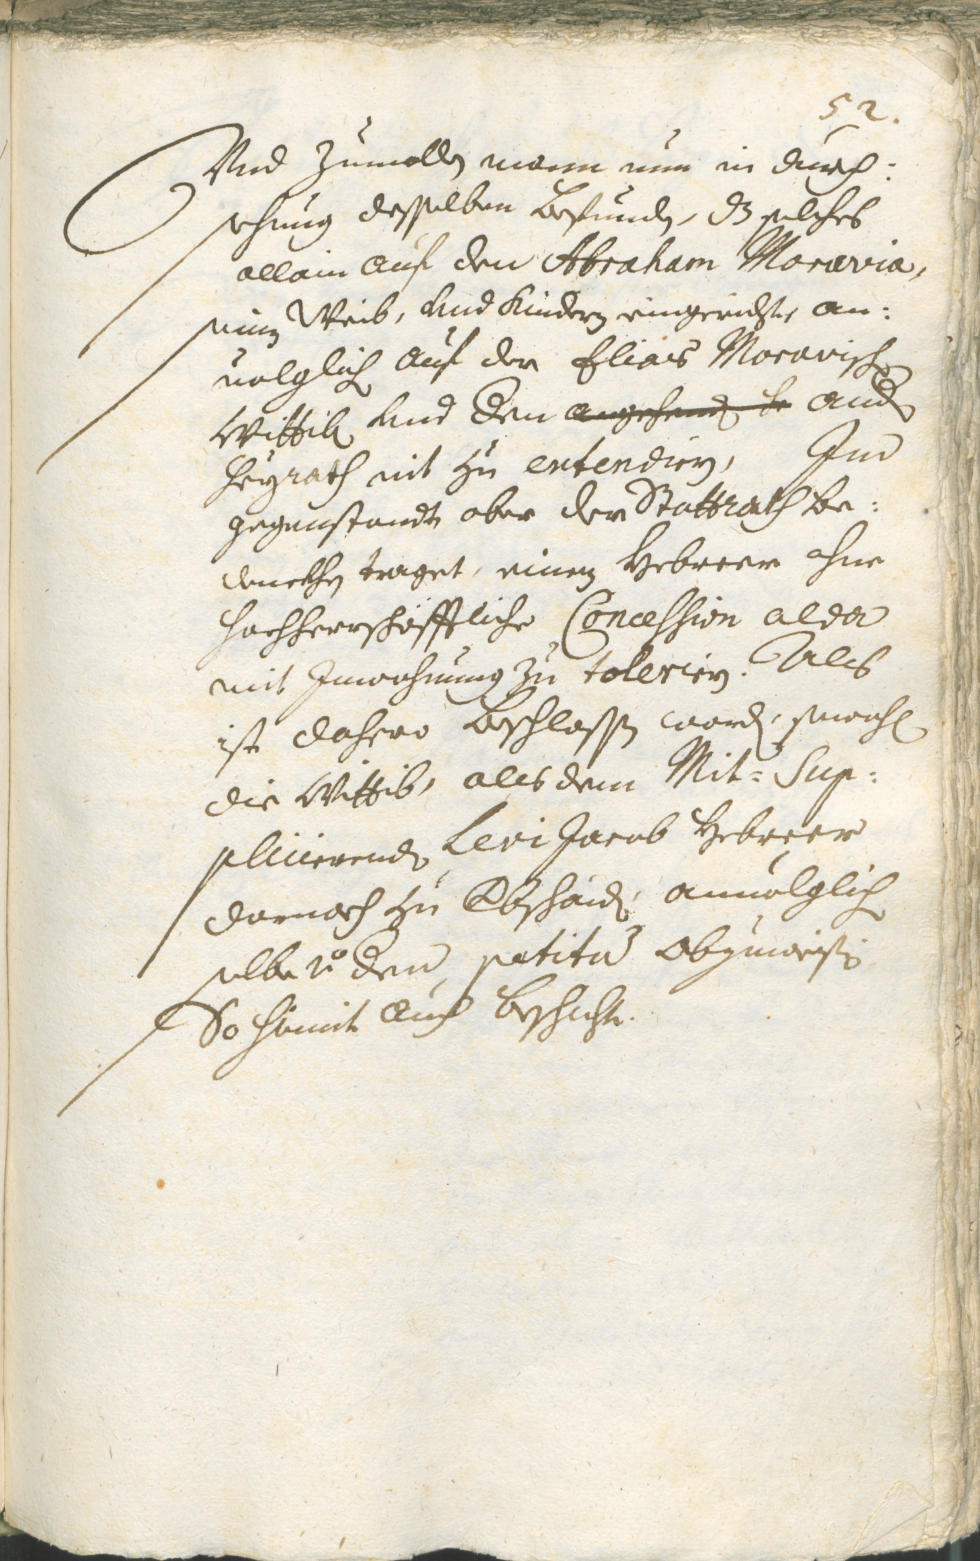 52.
Und Zumallen mann nun in durch:
sehung desselben befunden, dz solches
allain auf den Abraham Moravia,
sein Weib, und Kindern eingerichtet, an:
uolglich auf der Elias Moravisch
Wittib und den angehend andern
Heyrath nit zu extendirn, Im
gegenstandt aber der Stattrath be:
denckhen traget, einen Hebreer ohne
hochherrschäfftliche Concession alda
mit Inwohnung zu toleriern. Als
ist dahero beschlossen worden, sowohl
die Wittib, als dem Mit-Sup:
plicierenden Levi Jacob Hebreer
darnach zu beschaiden, anuolglich
selbe von dem petitu abzuweisen
So hiemit auch beschicht.